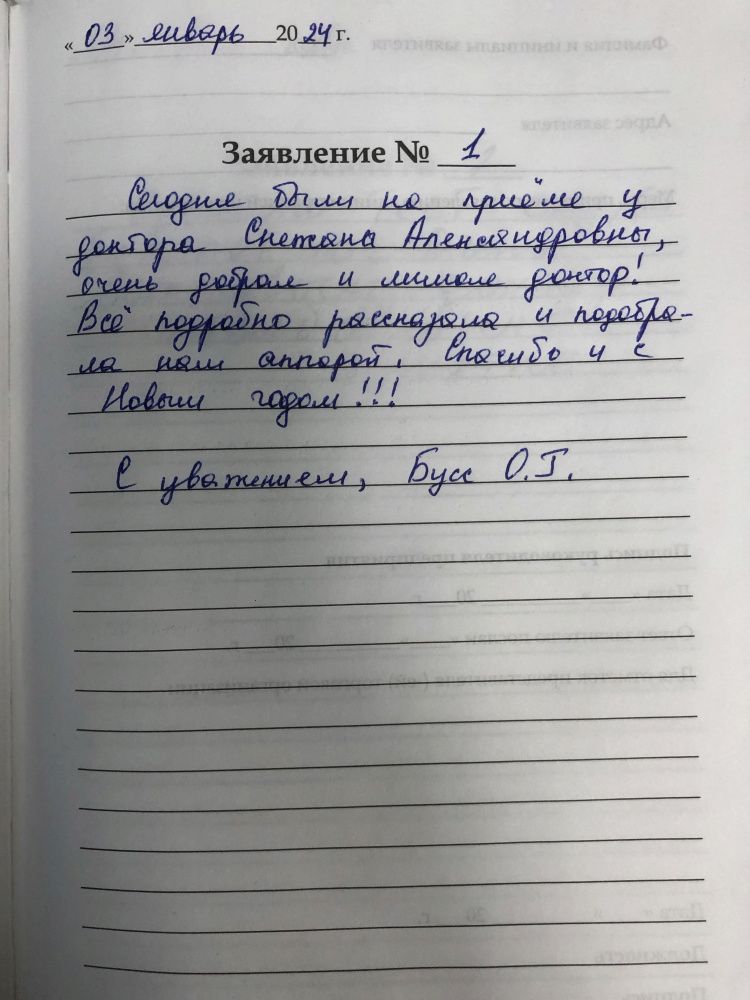 « 03 » январь 2024 г.
Заявление № 1
Сегодня были на приёме у
доктора Снежана Александровны,
очень добрая и милая доктор!
Всё подробно рассказала и подобра-
ла нам аппарат. Спасибо и с
Новым годом!!!
С уважением, Бусс О.Г.